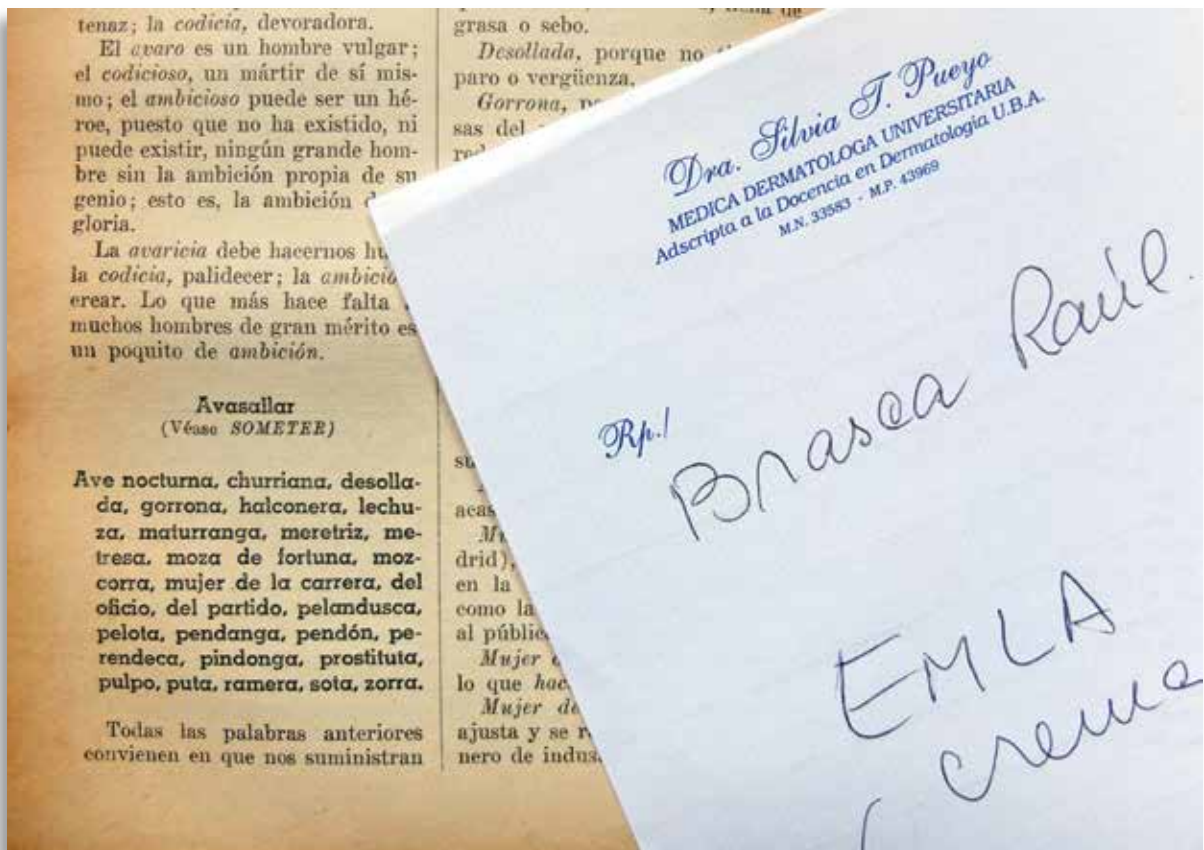 tenaz; la codicia, devoradora.
El avaro es un hombre vulgar;
el codicioso, un mártir de sí mis-
mo; el ambicioso puede ser un hé-
roe, puesto que no ha existido, ni
puede existir, ningún grande hom-
bre sin la ambición propia de su
genio; esto es, la ambición
gloria.
La avaricia debe hacernos
la codicia, palidecer; la
crear. Lo que más hace falta
muchos hombres de gran mérito es
un poquito de ambición.
Avasallar
(Véase SOMETER)
Ave nocturna, churriana, desolla-
da, gorrona, halconera, lechu-
za, maturranga, meretriz, me-
tresa, moza de fortuna, moz-
corra, mujer de la carrera, del
oficio, del partido, pelandusca,
pelota, pendanga, pendón, pe-
rendeca, pindonga, prostituta,
pulpo, puta, ramera, sota, zorra.
Todas las palabras anteriores
convienen en que nos suministran
grasa o sebo.
Desollada, porque no
paro o vergüenza.
Gorrona,
sas del
drid),
en la
como la
al
Mujer
lo que
Mujer
ajusta y se
nero de
Dra. Silvia T. Pueyo
MEDICA DERMATOLOGA UNIVERSITARIA
Adscripta a la Docencia en Dermatología U.B.A.
M.N. 33583 - M.P. 43969
Rp./
Brasca Raúl.
EMLA
crema